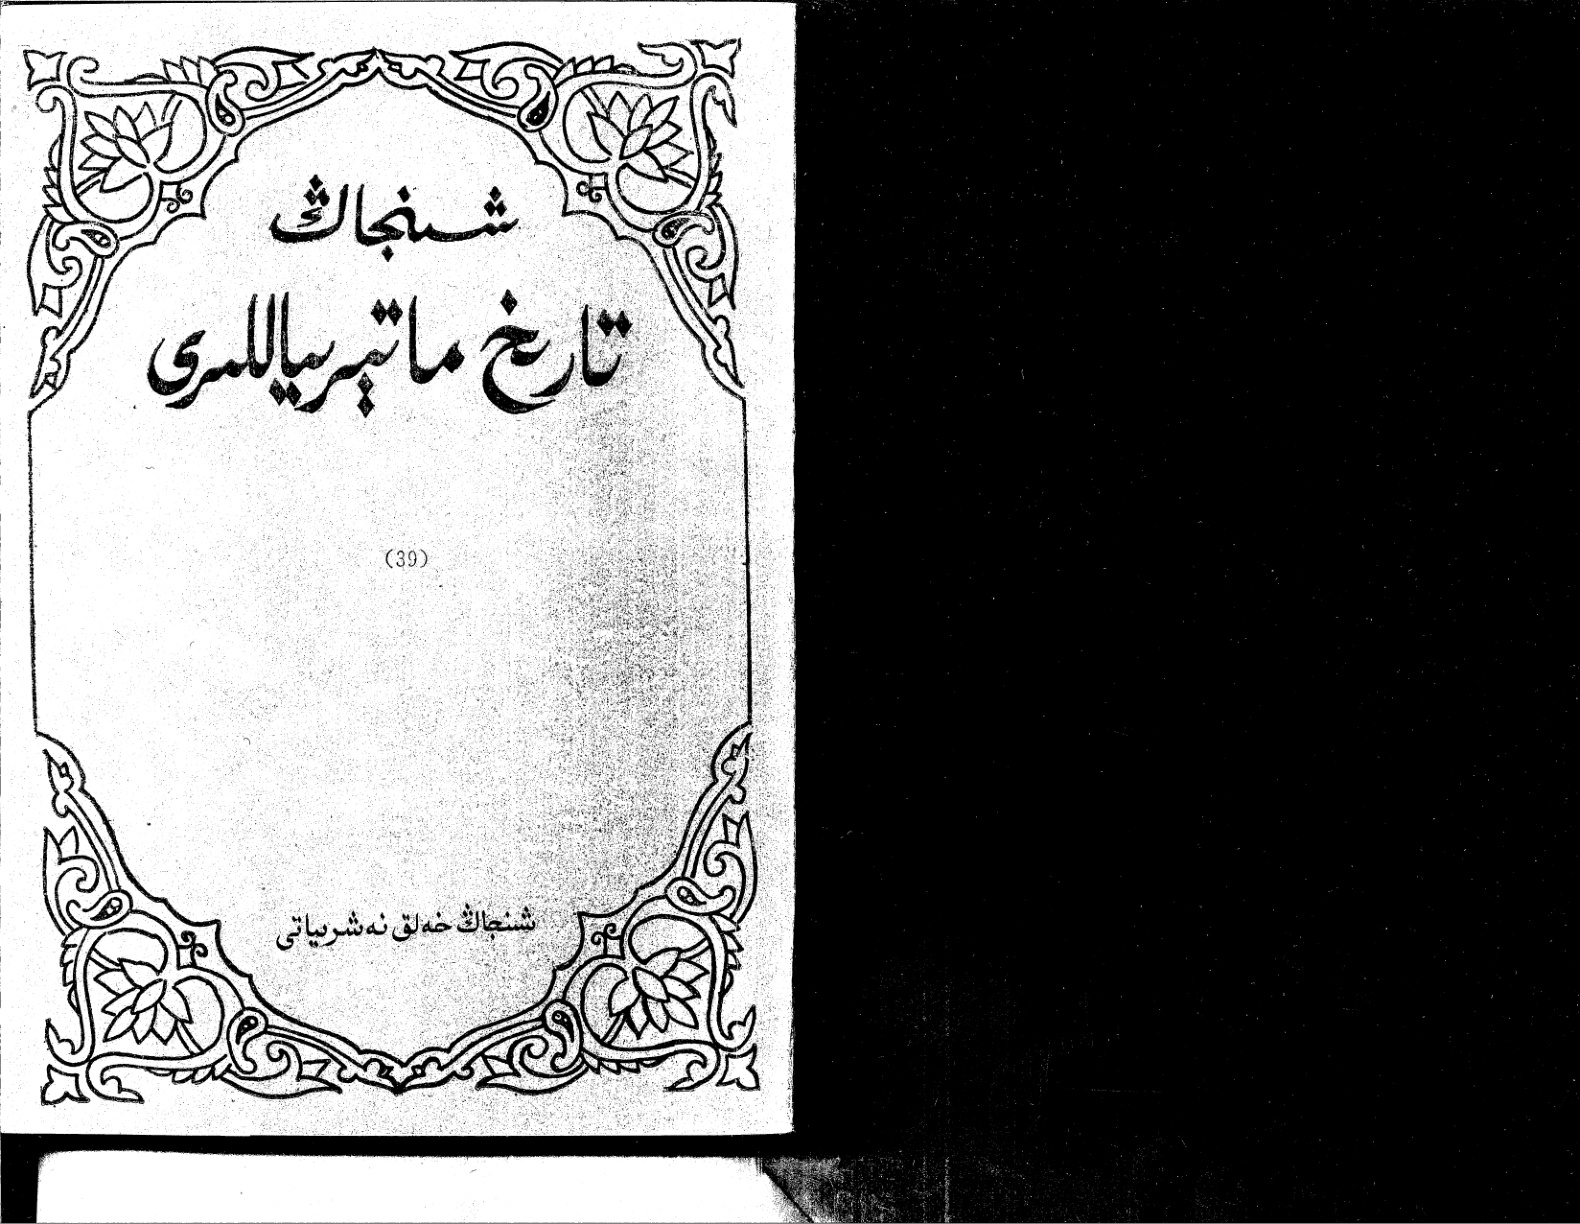 شىنجاڭ
تارىخ ماتېرىياللىرى
(39)
شىنجاڭ خەلق نەشرىياتى